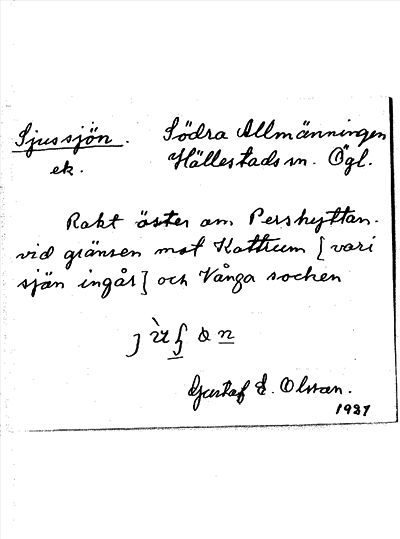 Ljussjön. Södra Allmänningen
ek. Hällestads sn. Ögl.
Rakt öster om Pershyttan.
vid gränsen mot Kattrum [vari
sjön ingår] och Vånga socken
Gustaf E. Olsson.
1937